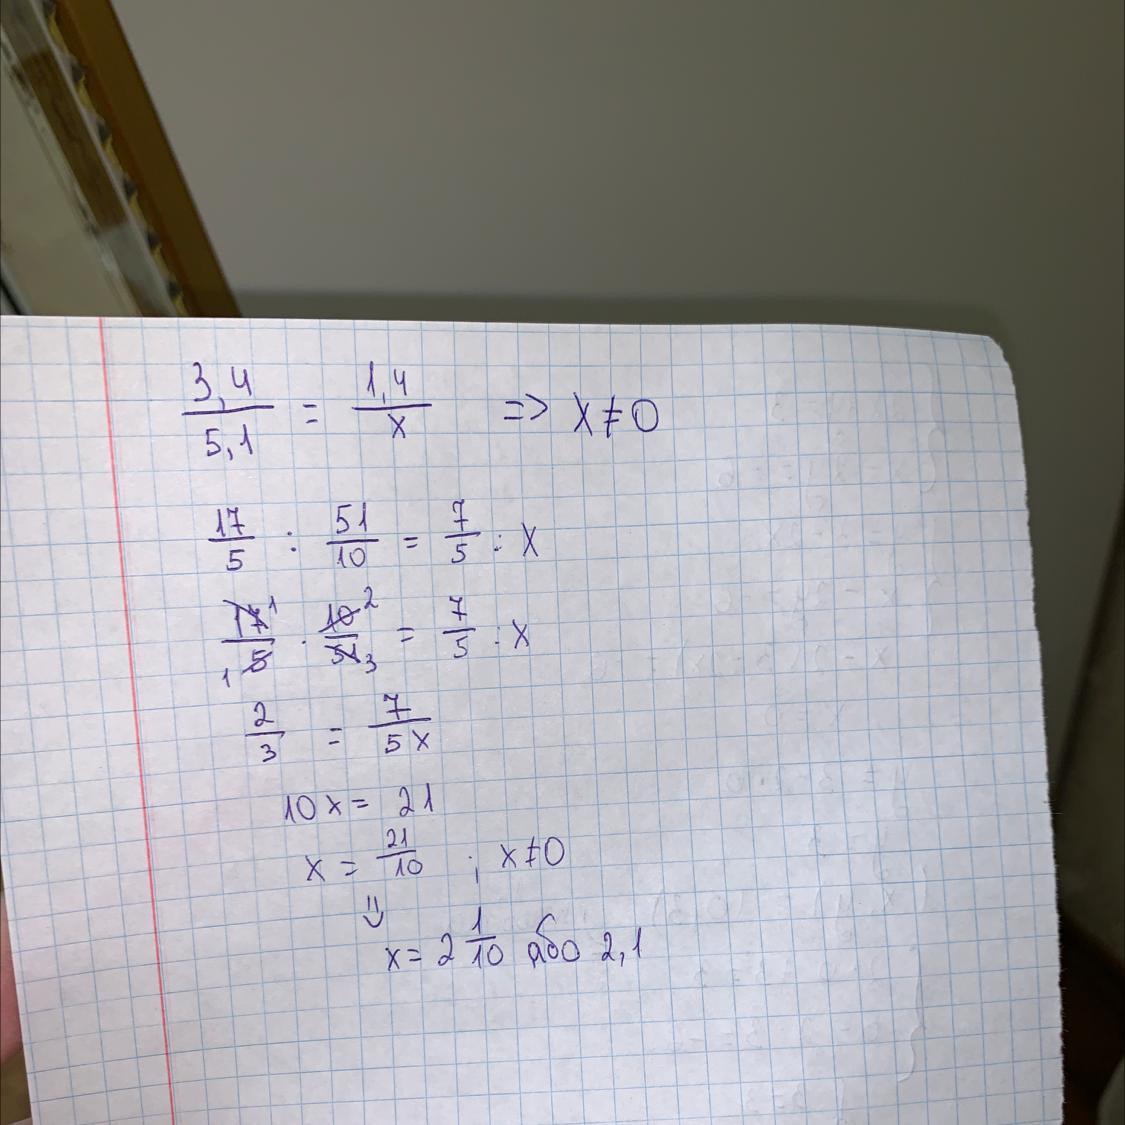 3,4/5,1 = 1,4/x => x≠0
17/5 : 51/10 = 7/5 : x
17¹/₁5 · 10²/51₃ = 7/5 : x
2/3 = 7/5x
10x = 21
x = 21/10 ; x≠0
⇓
x = 2 1/10 або 2,1